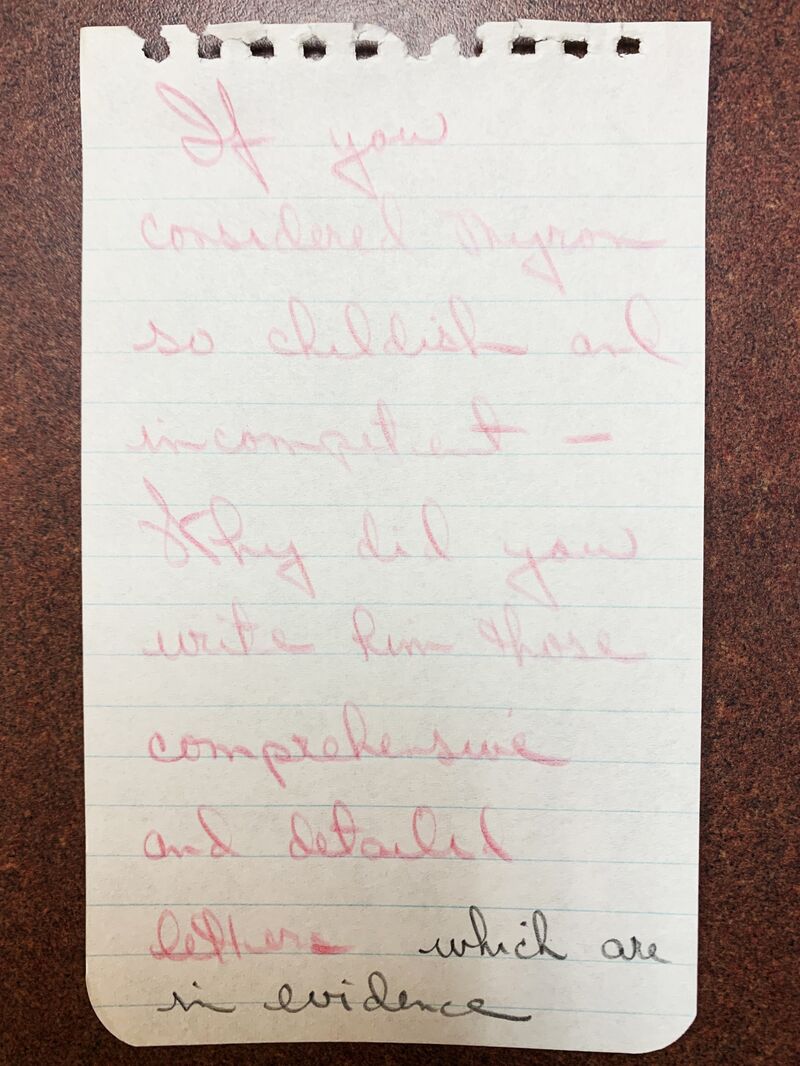 If you
considered Myron
so childish and
incompetent —
Why did you
write him those
comprehensive
and detailed
letters which are
in evidence